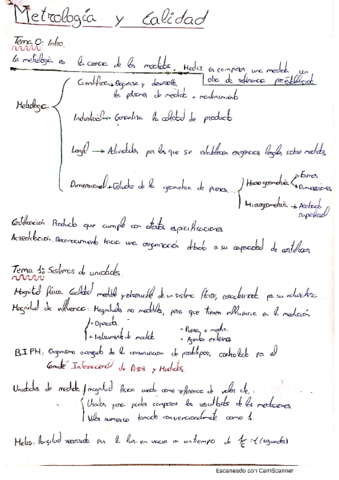 Metrología y Calidad
Tema 0: Intro.
La metrología es la ciencia de las medidas. Medir es comparar una medida con
otra de referencia preestablecida
Metrología
Científica → Organiza y desarrolla
los patrones de medida + mantenimiento
Industrial → Garantiza la calidad de producto
Legal → Actividades por las que se establecen exigencias legales sobre medidas
Dimensional → Estudio de la geometría de piezas...
Macrogeometría
Formas
Dimensiones
Microgeometría → Acabado
superficial
Certificación: Producto que cumple con ciertas especificaciones
Acreditación: Reconocimiento hacia una organización debido a su capacidad de certificar
Tema 1: Sistemas de unidades.
Magnitud física: Cualidad medible y observable de un sistema físico, caracterizada por su naturaleza
Magnitud de influencia: Magnitudes no medibles, pero que tienen influencia en la medición
- Operario
- Instrumento de medida
- Pieza a medir
- Agentes externos
B.I.P.M: Organismo encargado de la conservación de prototipos, controlado por el
Comité Internacional de Pesas y Medidas
Unidades de medida / magnitud física usada como referencia de valor de...
Usados para poder comparar los resultados de las mediciones
Valor numérico tomado convencionalmente como 1.
Metro: longitud recorrida por la luz en vacío en un tiempo de (segundos)
Escaneado con CamScanner